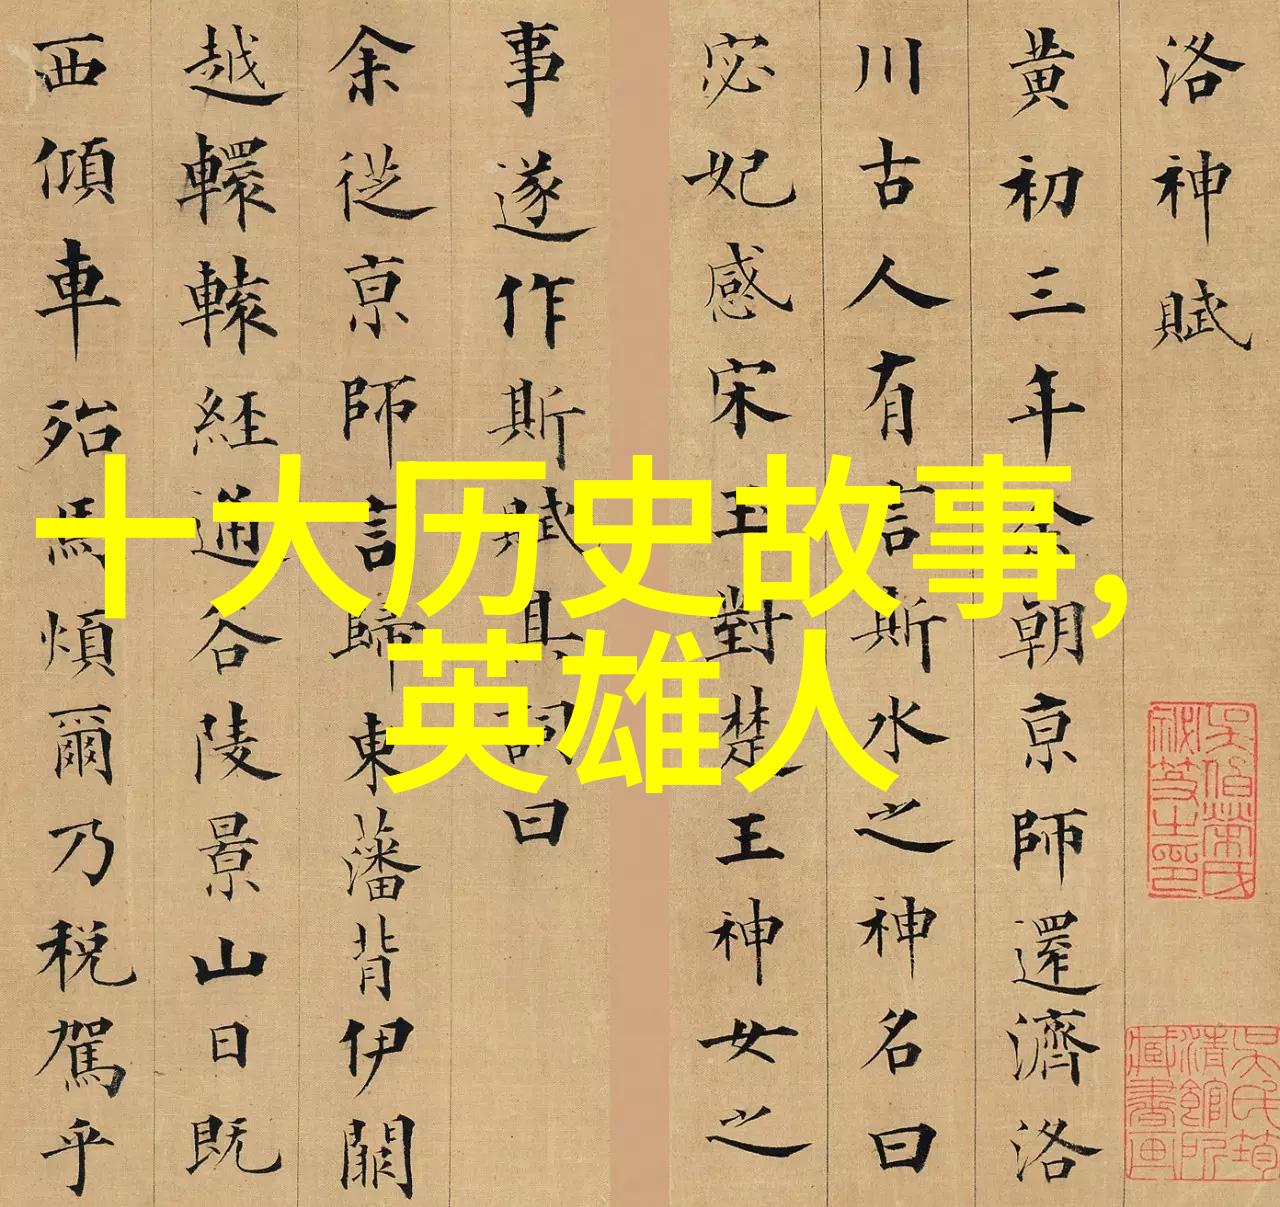 洛神賦
黄初三年余朝京師還濟洛
川古人有言斯水之神名曰
宓妃感宋玉對楚王神女之
事遂作斯賦其詞曰
余從京師言歸東藩背伊闕
越轘轅經通谷陵景山日既
西傾車殆馬煩爾乃税駕乎
十大历史故事,
英雄人